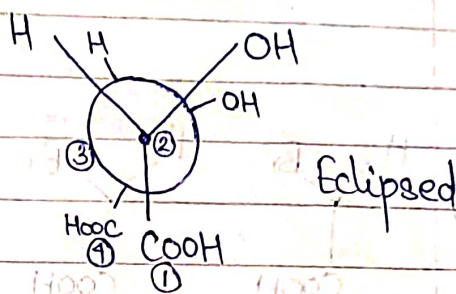 H H OH
OH
② 
③
Eclipsed
HOOC
④ COOH
①